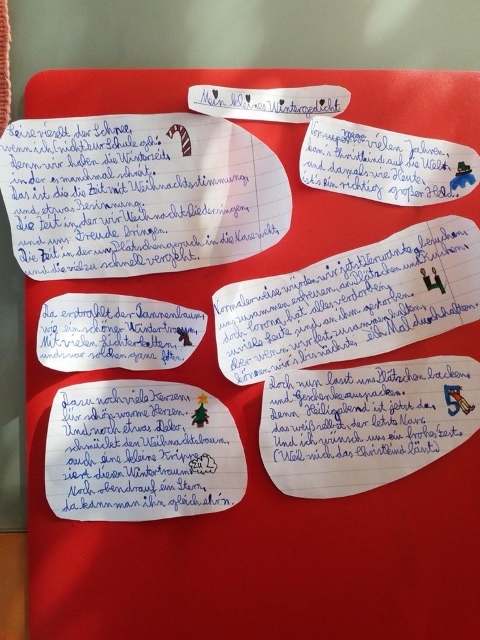 Mein kleines Wintergedicht
Leise rieselt der Schnee,
wenn ich nicht zur Schule geh.
Denn wir haben die Winterzeit
in der es manchmal schneit.
Das ist die die Zeit mit Weihnachtsstimmung,
und etwas Besinnung.
Die Zeit in der wir Weihnachtslieder singen,
und uns Freude bringen.
Die Zeit in der uns Plätschengeruch in die Nase weht,
und die viel zu schnell vergeht.
Vor super mega vielen Jahren,
kam's Christkind auf die Welt,
und damals wie Heute,
ist's ein richtig großer Held.
Da erstrahlt der Tannenbaum,
wie ein schöner Wintertraum,
Mit vielen Lichterketten,
und zwar solchen ganz fetten.
Normalerweise würden wir jetzt Verwandte besuchen,
uns zusammen erfreuen an Plätzchen und Kuchen.
doch Corona hat alles verdorben,
zu viele Leute sind an ihm gestorben.
Aber wenn wir fest zusammenhalten,
können wir's bis nächstes Mal durchhalten.
Dazu noch viele Kerzen,
für schöne warme Herzen.
Und noch etwas Deko,
schmückt den Weihnachtsbaum,
auch eine kleine Krippe,
ziert diesen Wintertraum.
Noch obendrauf ein Stern,
da kann man ihn gleich ehr'n.
Doch nun lasst uns Plätzchen backen
und Geschenke auspacken.
Denn Heiligabend ist jetzt da,
das weiß selbst der letzte Narr.
Und ich wünsch uns ein frohes Fest
(Weil mich das Christkind lässt.)